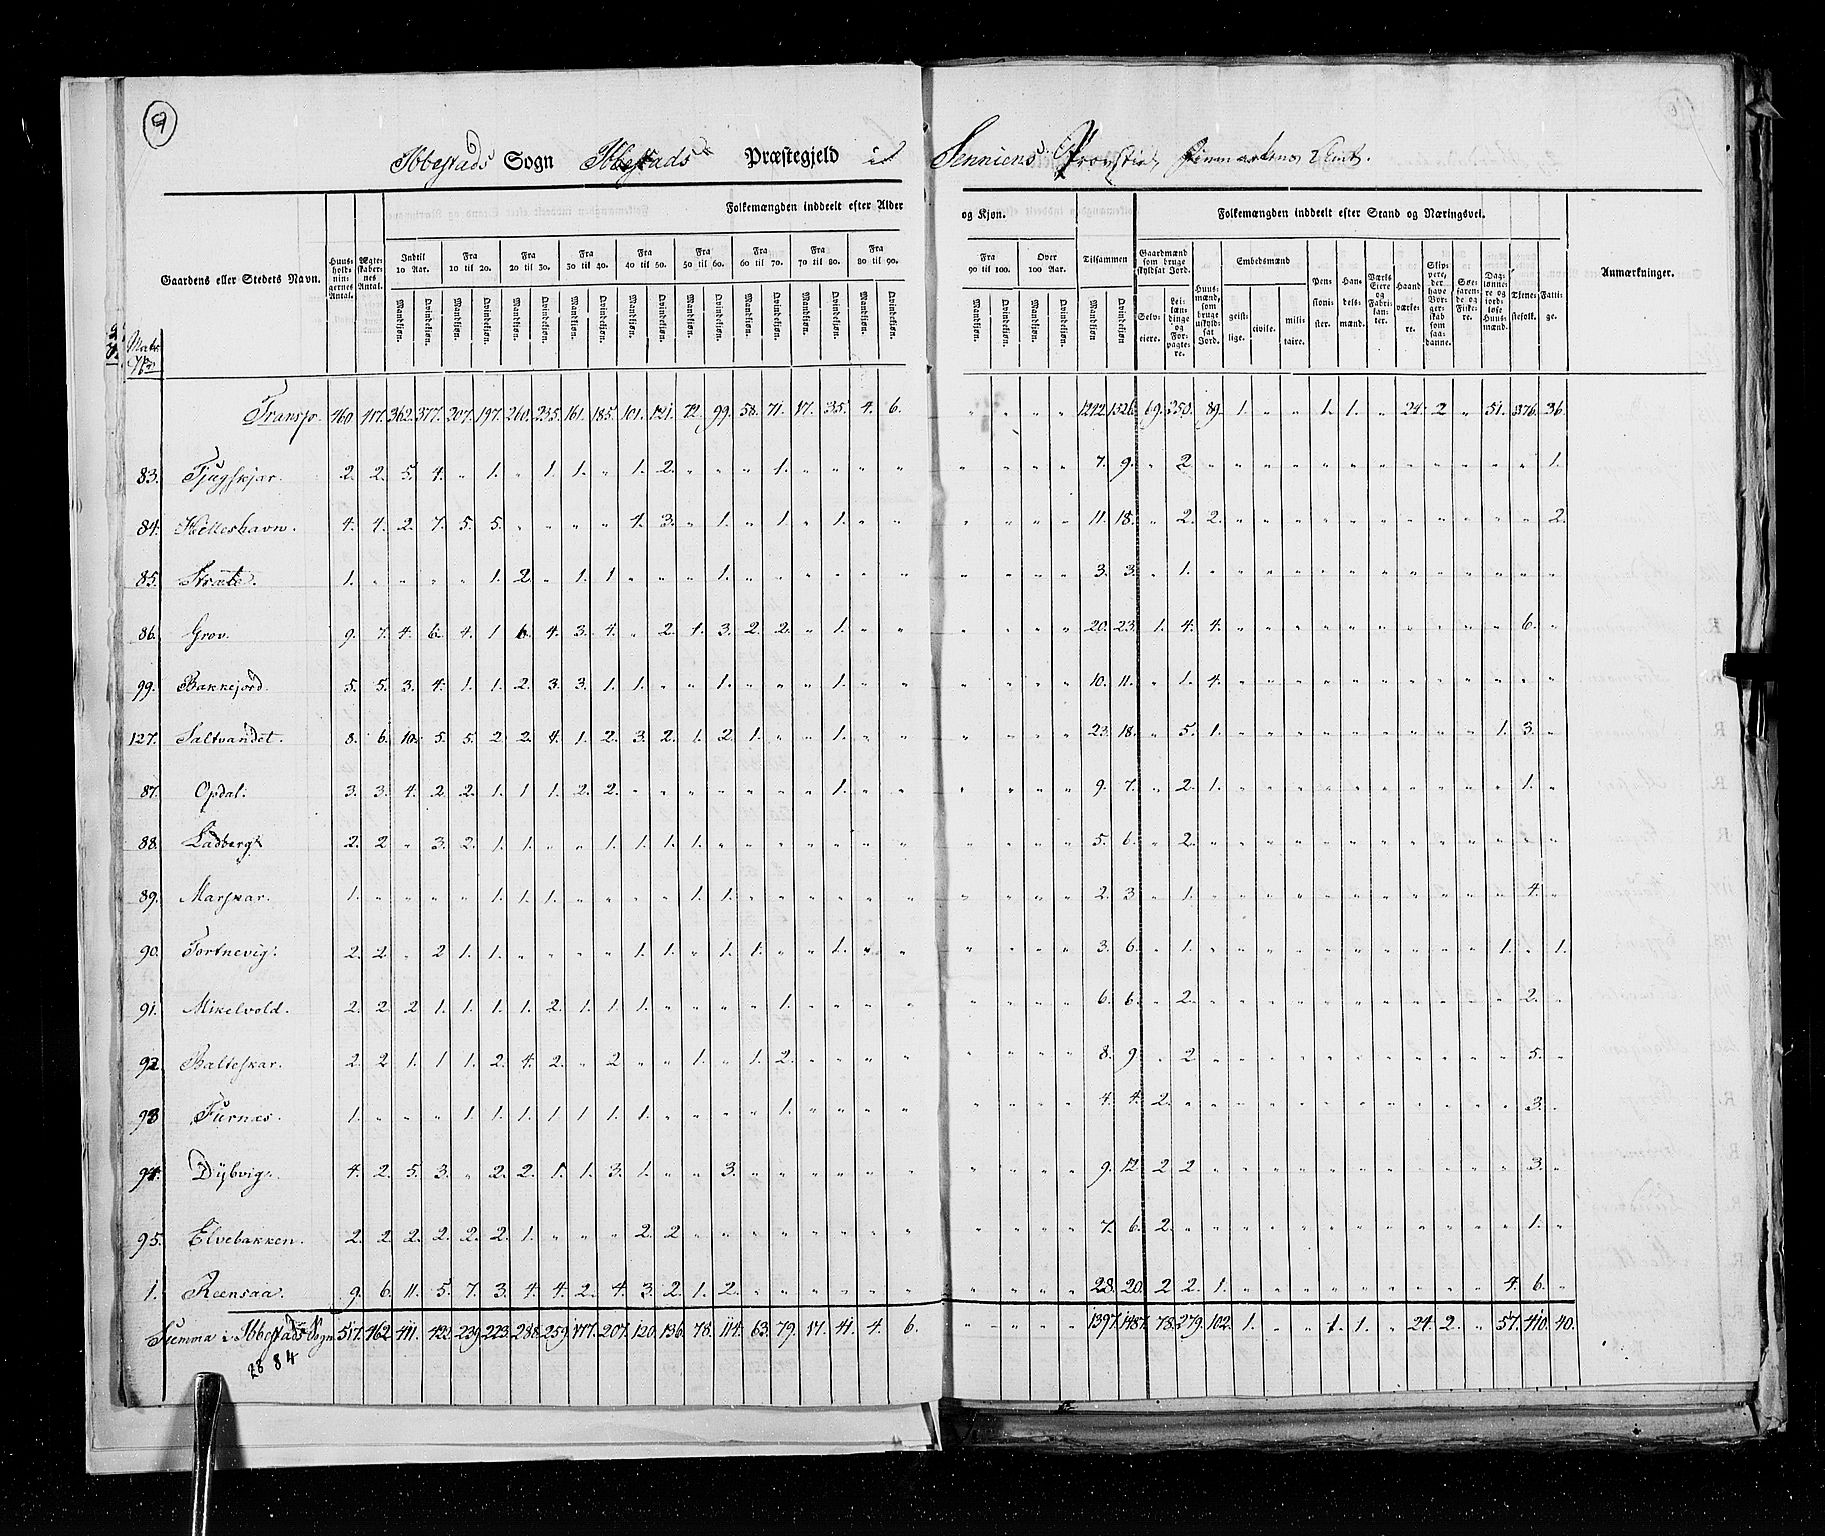 9
Ibbestads Sogn Ibbestads Præstegjeld i Senniens Provstie, Finmarkens Amt.
Folkemængden inddeelt efter Alder og Kjøn.
Folkemængden inddeelt efter Stand og Næringsvei.
Matr. No
Gaardens eller Stedets Navn.
Huusholdningernes Antal.
Ægteskabernes Antal.
Indtil 10 Aar.
Fra 10 til 20.
Fra 20 til 30.
Fra 30 til 40.
Fra 40 til 50.
Fra 50 til 60.
Fra 60 til 70.
Fra 70 til 80.
Fra 80 til 90.
Fra 90 til 100.
Over 100 Aar.
Tilsammen
Mandkjøn. Qvindekjøn.
Gaardmænd som bruge skyldsat Jord.
Selveiere.
Leilændinge og Forpagtere.
Huusmænd, som bruge uskyldsat Jord.
Embedsmænd
geistlige. civile. militaire.
Pensionister.
Handelsmænd.
Værks Eiere og Fabrikanter.
Haandværkere.
Skippere, der have Borgerskab som saadanne.
Søefarende og Fiskere.
Daglønnere og jordløse Huusmænd.
Tjenestefolk.
Fattige.
Anmærkninger.
Transp. 460 417. 362. 377. 207. 197. 260. 235. 161. 185. 101. 121. 72. 99. 58. 71. 17. 35. 4. 6. " " " " 1242. 1326. 69. 250. 89. 1. " " 1. 1. " 24. 2 " 51. 376. 36.
83. Tjugskjær. 2. 2. 5. 4. " 1. " 1. 1. " 1. 2. " " " 1. " " " " " " " " 7. 9. " 2. " " " " " " " " " " " " 1.
84. Helleshavn. 4. 4. 2. 7. 5. 5. " " " " 4. 3. " 1. " 1. " 1. " " " " " " 11. 18. " 2. 2. " " " " " " " " " " " 2.
85. Stræte. 1. " " " " 1. 2. " 1. 1 " " " 1. " " " " " " " " " " 3. 3. " 1. " " " " " " " " " " " " "
86. Grov. 9. 7. 4. 6. 4. 1 6. 4. 3. 4. " 2. 1. 3. 2. 2. " 1. " " " " " " 20. 23. 1. 4. 4. " " " " " " " " " " 6. "
99. Bakkejord. 5. 5. 3. 4. 1. 1. 2. 3. 3. 1. 1. " " 1. " " " 1. " " " " " " 10. 11. " 1. 4. " " " " " " " " " " " "
127. Saltvandet. 8. 6. 10. 5. 5. 2. 2. 4. 1. 2. 3. 2. 1. 2. 1. " " 1. " " " " " " 23. 18. " 5. 1. " " " " " " " " " 1. 3. "
87. Opdal. 3. 3. 4. 2. 2. 1. 1 1. 2. 2. " " " " " " " 1. " " " " " " 9. 7. " 2. 1. " " " " " " " " " " 1. "
88. Ladberg 2. 2 " 3. 2. 1. 1. " " 1. 1. 1. 1. " " " " " " " " " " " 5. 6. " 2. " " " " " " " " " " " " "
89. Marskar. 1. " " " " 1. 1. 1. " " " " 1. 1. " " " " " " " " " " 2. 3 " 1. " " " " " " " " " " " 4. "
90. Tortnevig. 2. 2. " 2 1. 1. " " " " 1. 1. " 1. 1. " " 1. " " " " " " 3. 6. " 1. " " " " " " " " " " 1. " 1.
91. Mikelvold. 2. 2. 2 1. 1. 1. 1. 2. 1. 1. 1. " " " " 1. " " " " " " " " 6. 6. " 2. " " " " " " " " " " " 2. "
92. Balteskar. 2. 2 1. 1 1. 2. 4. 2. " 2. " " 1. " 1. 2. " " " " " " " " 8. 9. " 2. " " " " " " " " " " " 5. "
93 Furnæs. 1. " " " 1. 1. 1. 1. 1. 1. 1. " " " " 1. " " " " " " " " 4. 4. 2. " " " " " " " " " " " " 3. "
94. Dybvig. 4. 2. 5. 3. " 2. 2. 1. 1. 3. 1. " " 3. " " " " " " " " " " 9. 12. 2 2 " " " " " " " " " " " 3. "
95. Elvebakken. 2. 2. 2. 2. 2. 2. 1. " " " 2. 2 " " " " " " " " " " " " 7. 6. 2. " " " " " " " " " " " " 1. "
1. Reensaa. 9. 6. 11. 5. 7. 3. 4. 4. 2. 4. 3. 2. 1. 2. " " " " " " " " " " 28. 20. 2 2. 1. " " " " " " " " " 4. 6. "
Summa i Ibbestads Sogn 517. 462. 411. 422. 239. 223. 288. 259. 177. 207. 120. 136. 78. 114. 63. 79. 17. 41. 4. 6. " " " " 1397. 1487. 78. 279. 102. 1. " " 1. 1. " 24. 2. " 57. 410. 40.
2884